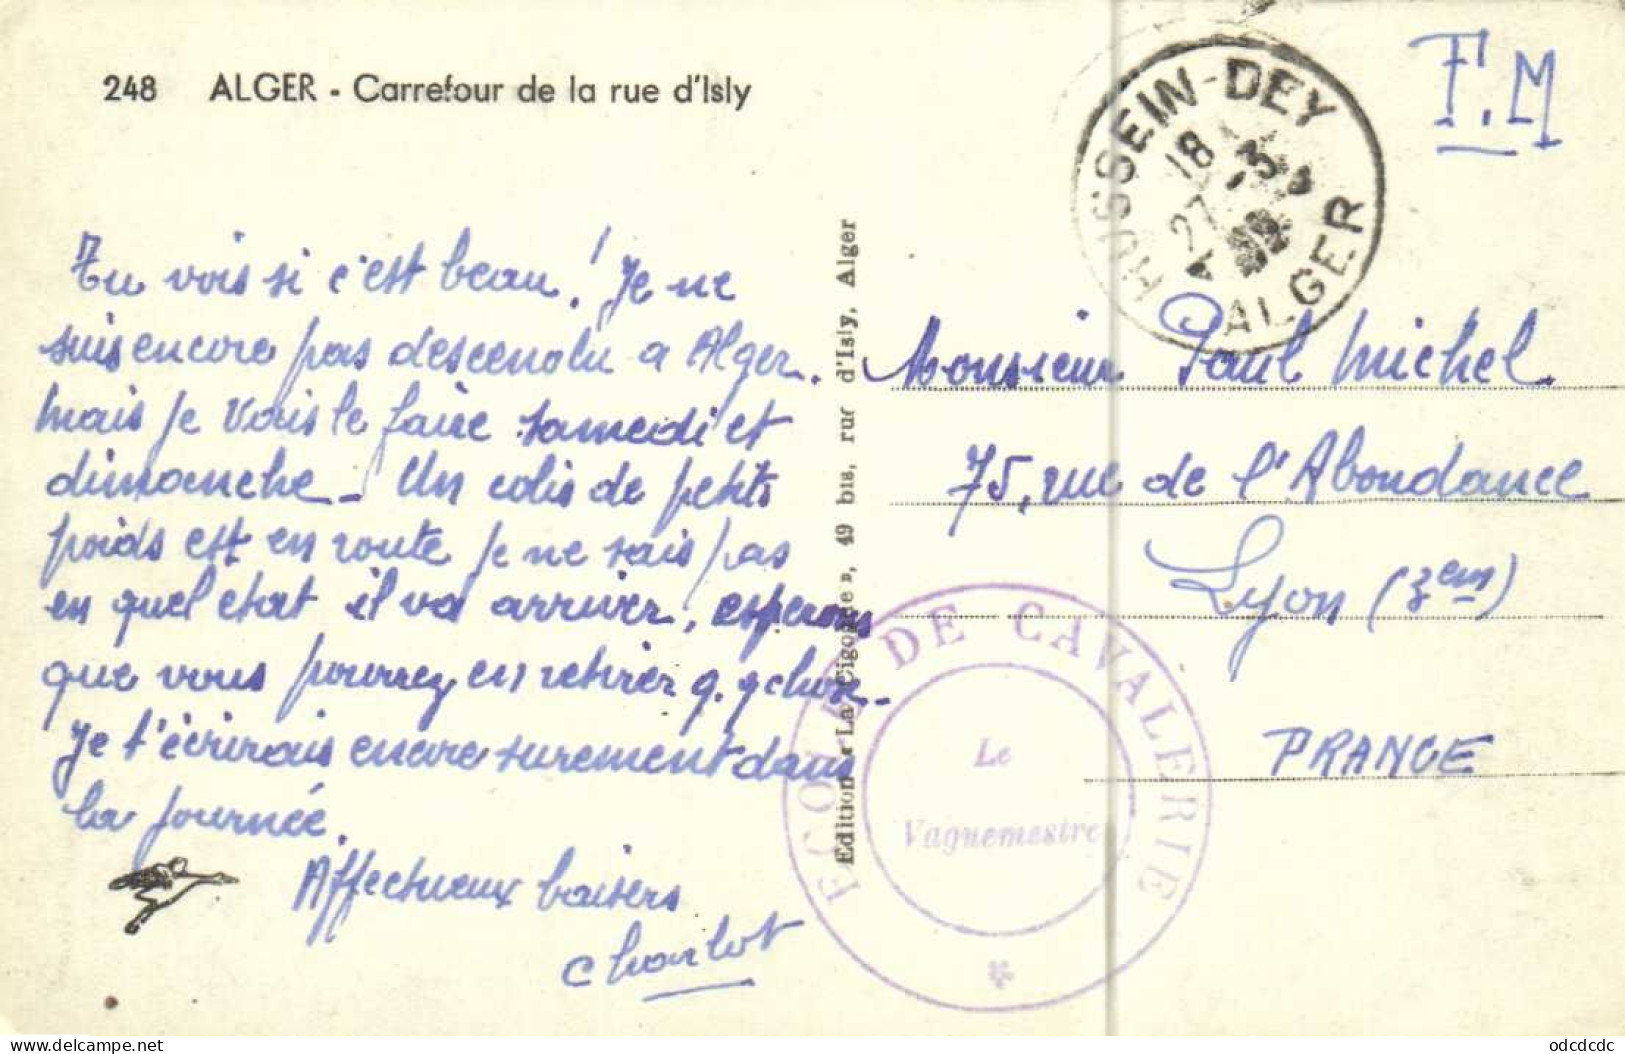 248 ALGER - Carrefour de la rue d'Isly
F.M
HUSSEIN-DEY
18
27
ALGER
Tu vois si c'est beau! Je ne
suis encore pas descendu a Alger.
Mais je vais le faire samedi et
dimanche - Un colis de petits
poids est en route je ne sais pas
en quel etat il va arriver, esperons
que vous pourrez en retirer q.q chose -
Je t'écrirais encore surement dans
la journée.
Affectueux baisers
Charlot
Edition "La Cigogne", 49 bis, rue d'Isly, Alger
Monsieur Paul Michel
75, rue de l'Abondance
Lyon (3em)
FRANCE
ECOLE DE CAVALERIE
Le
Vaguemestre
https://www.delcampe.net
odcdcdc